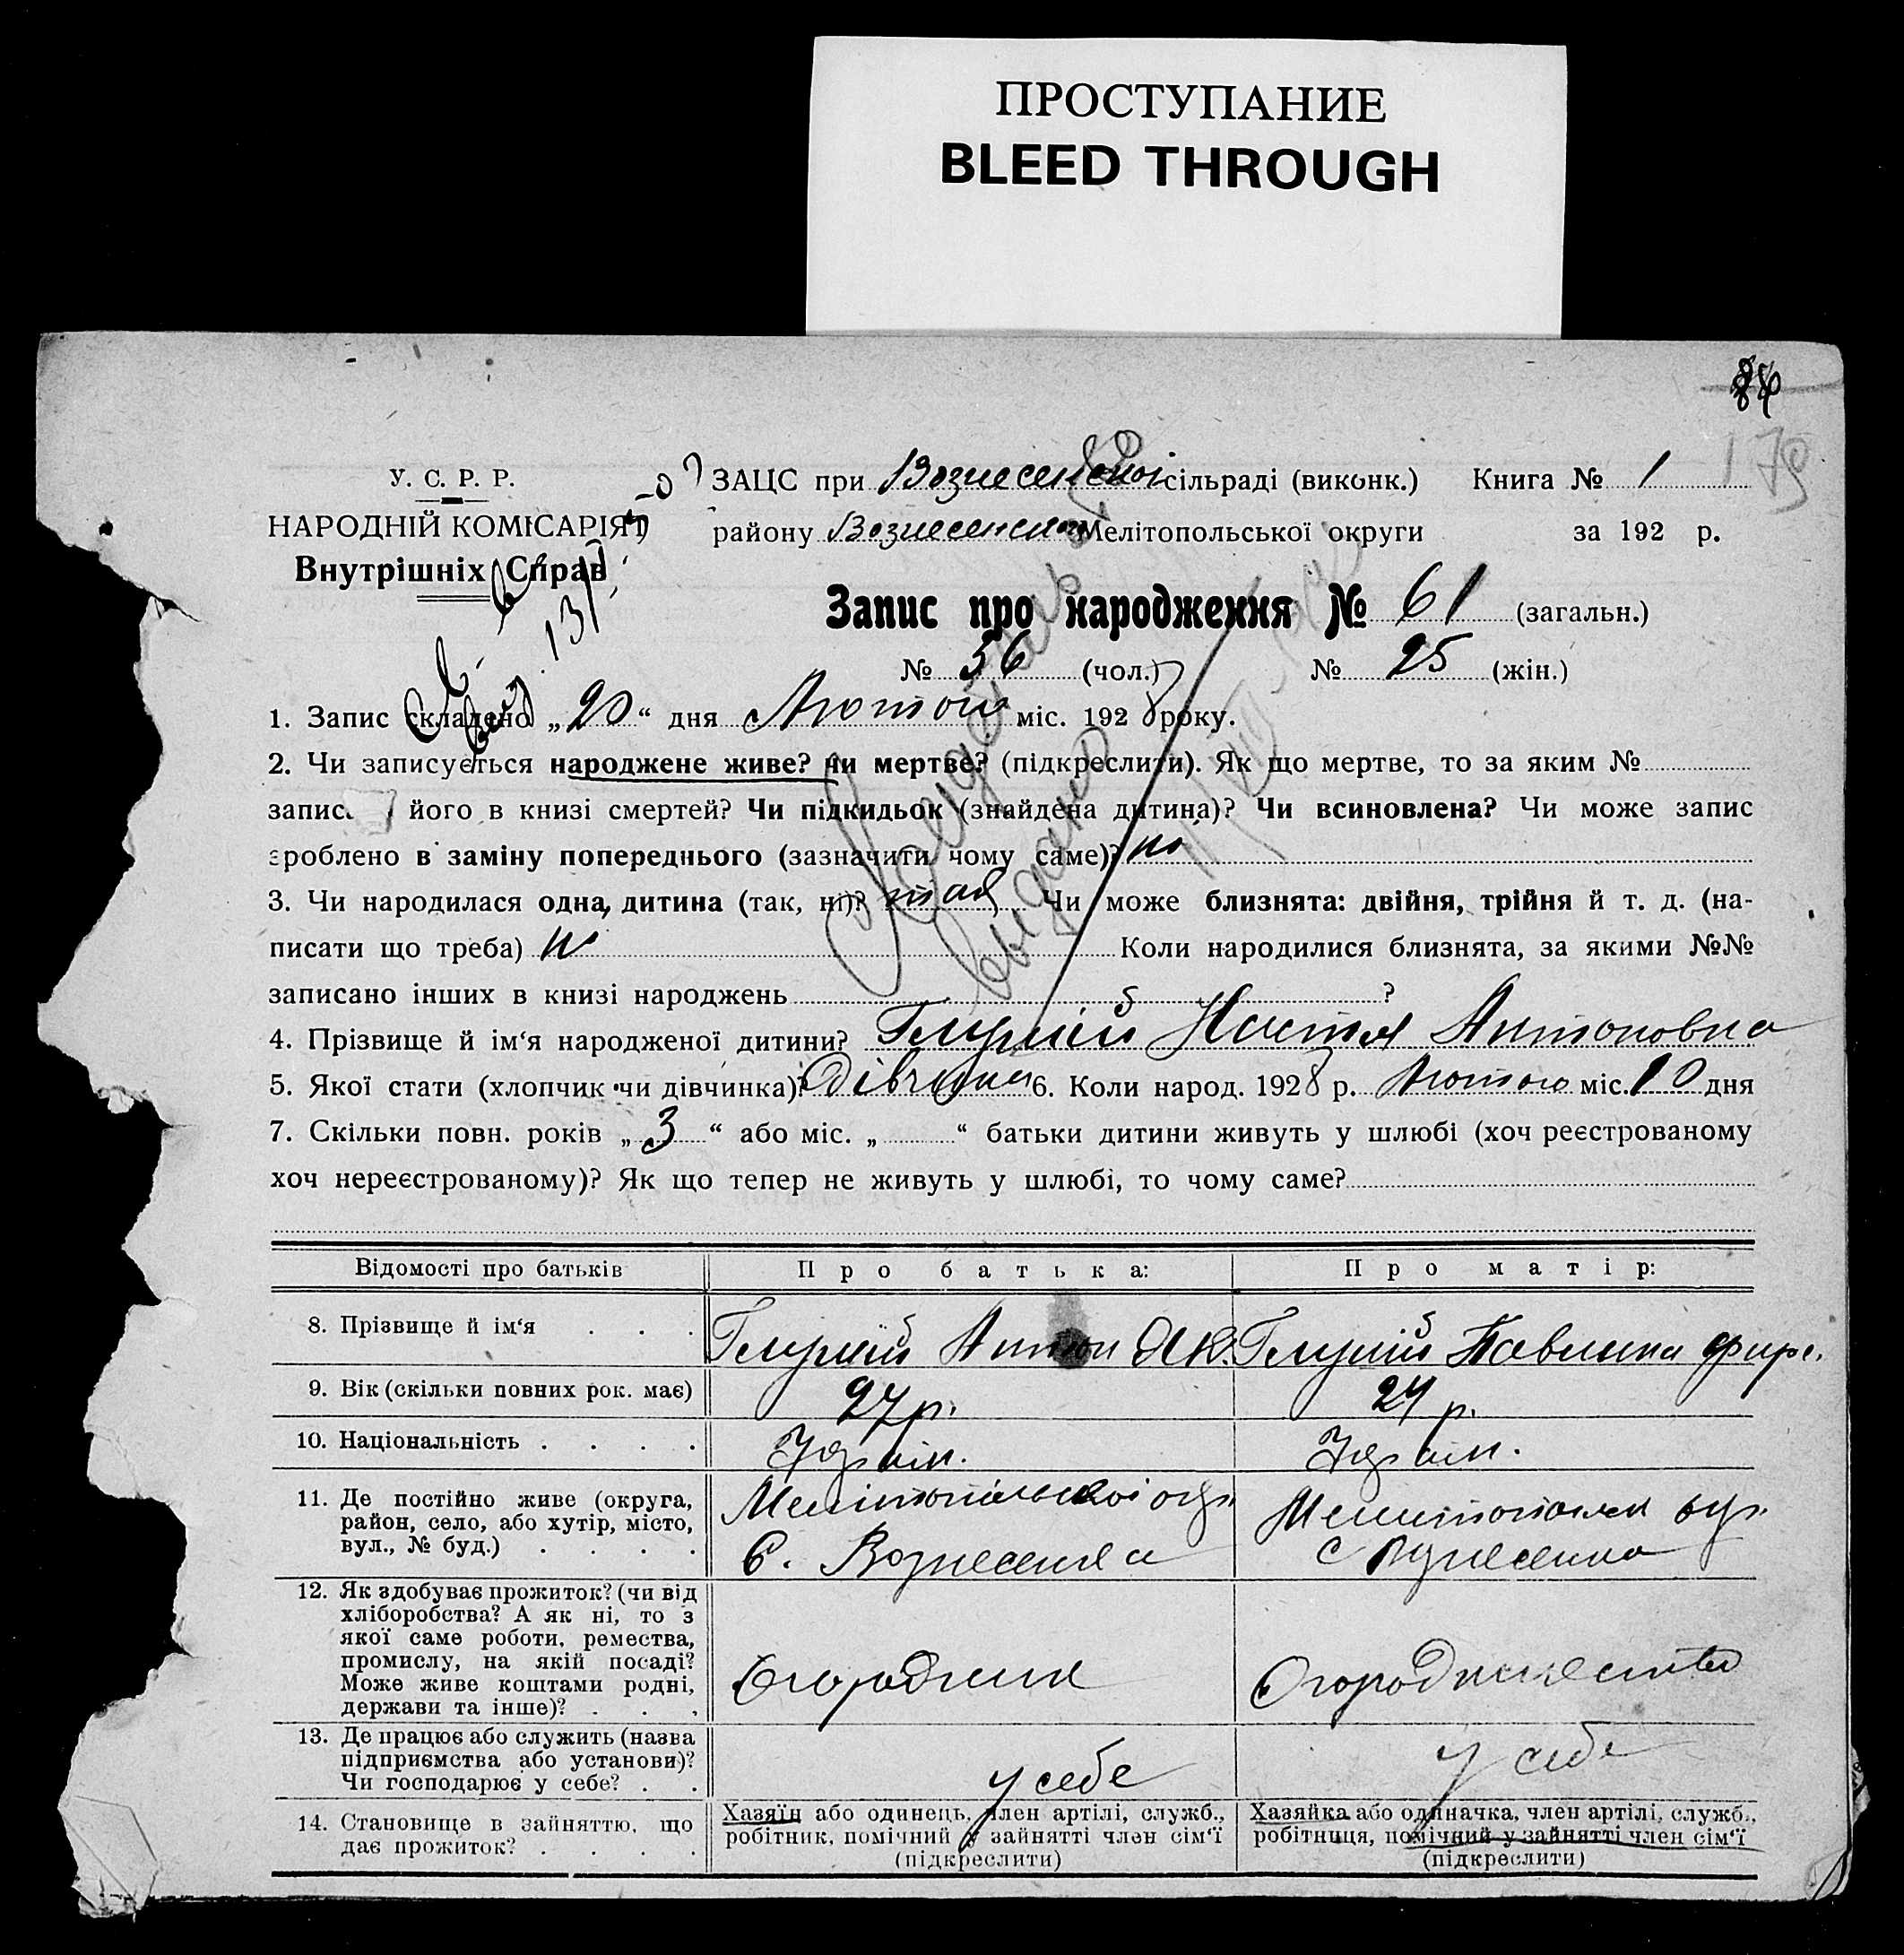 ПРОСТУПАНИЕ
BLEED THROUGH
179
У. С. Р. Р.
НАРОДНІЙ КОМІСАРІЯТ
Внутрішніх Справ
ЗАЦС при Вознесенской сільраді (виконк.) Книга № 1
району Вознесенского Мелітопольської округи за 192 р.
Запис про народження № 61 (загальн.)
№ 36 (чол.) № 25 (жін.)
1. Запис складено „20“ дня Лютого міс. 1928 року.
2. Чи записується народжене живе? чи мертве? (підкреслити). Як що мертве, то за яким №
його в книзі смертей? Чи підкидьок (знайдена дитина)? Чи всиновлена? Чи може запис
зроблено в заміну попереднього (зазначити чому саме)? ні
3. Чи народилася одна, дитина (так, ні)? так Чи може близнята: двійня, трійня й т. д. (на-
писати що треба) ні Коли народилися близнята, за якими №№
записано інших в книзі народжень ?
4. Прізвище й ім‘я народженої дитини? Настя Антоновна
5. Якої стати (хлопчик чи дівчинка)? дівчина 6. Коли народ. 1928 р. Лютого міс. 10 дня
7. Скільки повн. років „3“ або міс. „ “ батьки дитини живуть у шлюбі (хоч реєстрованому
хоч нереєстрованому)? Як що тепер не живуть у шлюбі, то чому саме?
Відомості про батьків Про батька: Про матір:
8. Прізвище й ім‘я . . . Антон Павлина
9. Вік (скільки повних рок. має) 27 р. 24 р.
10. Національність . . . . Україн. Україн.
11. Де постійно живе (округа,
район, село, або хутір, місто,
вул., № буд.) . . . .
Мелітопольской окр.
С. Вознесенка
Мелитопольск окр.
с Вознесенка
12. Як здобуває прожиток? (чи від
хліборобства? А як ні, то з
якої саме роботи, ремества,
промислу, на якій посаді?
Може живе коштами родні,
держави та інше)? . . .
Огородник
13. Де працює або служить (назва
підприємства або установи)?
Чи господарює у себе? . .
у себе
у себе
14. Становище в зайняттю, що
дає прожиток? . . . .
Хазяїн або одинець, член артілі, служб.,
робітник, помічний у зайнятті член сім‘ї
(підкреслити)
Хазяйка або одиначка, член артілі, служб.,
робітниця, помічний у зайнятті член сім‘ї
(підкреслити)